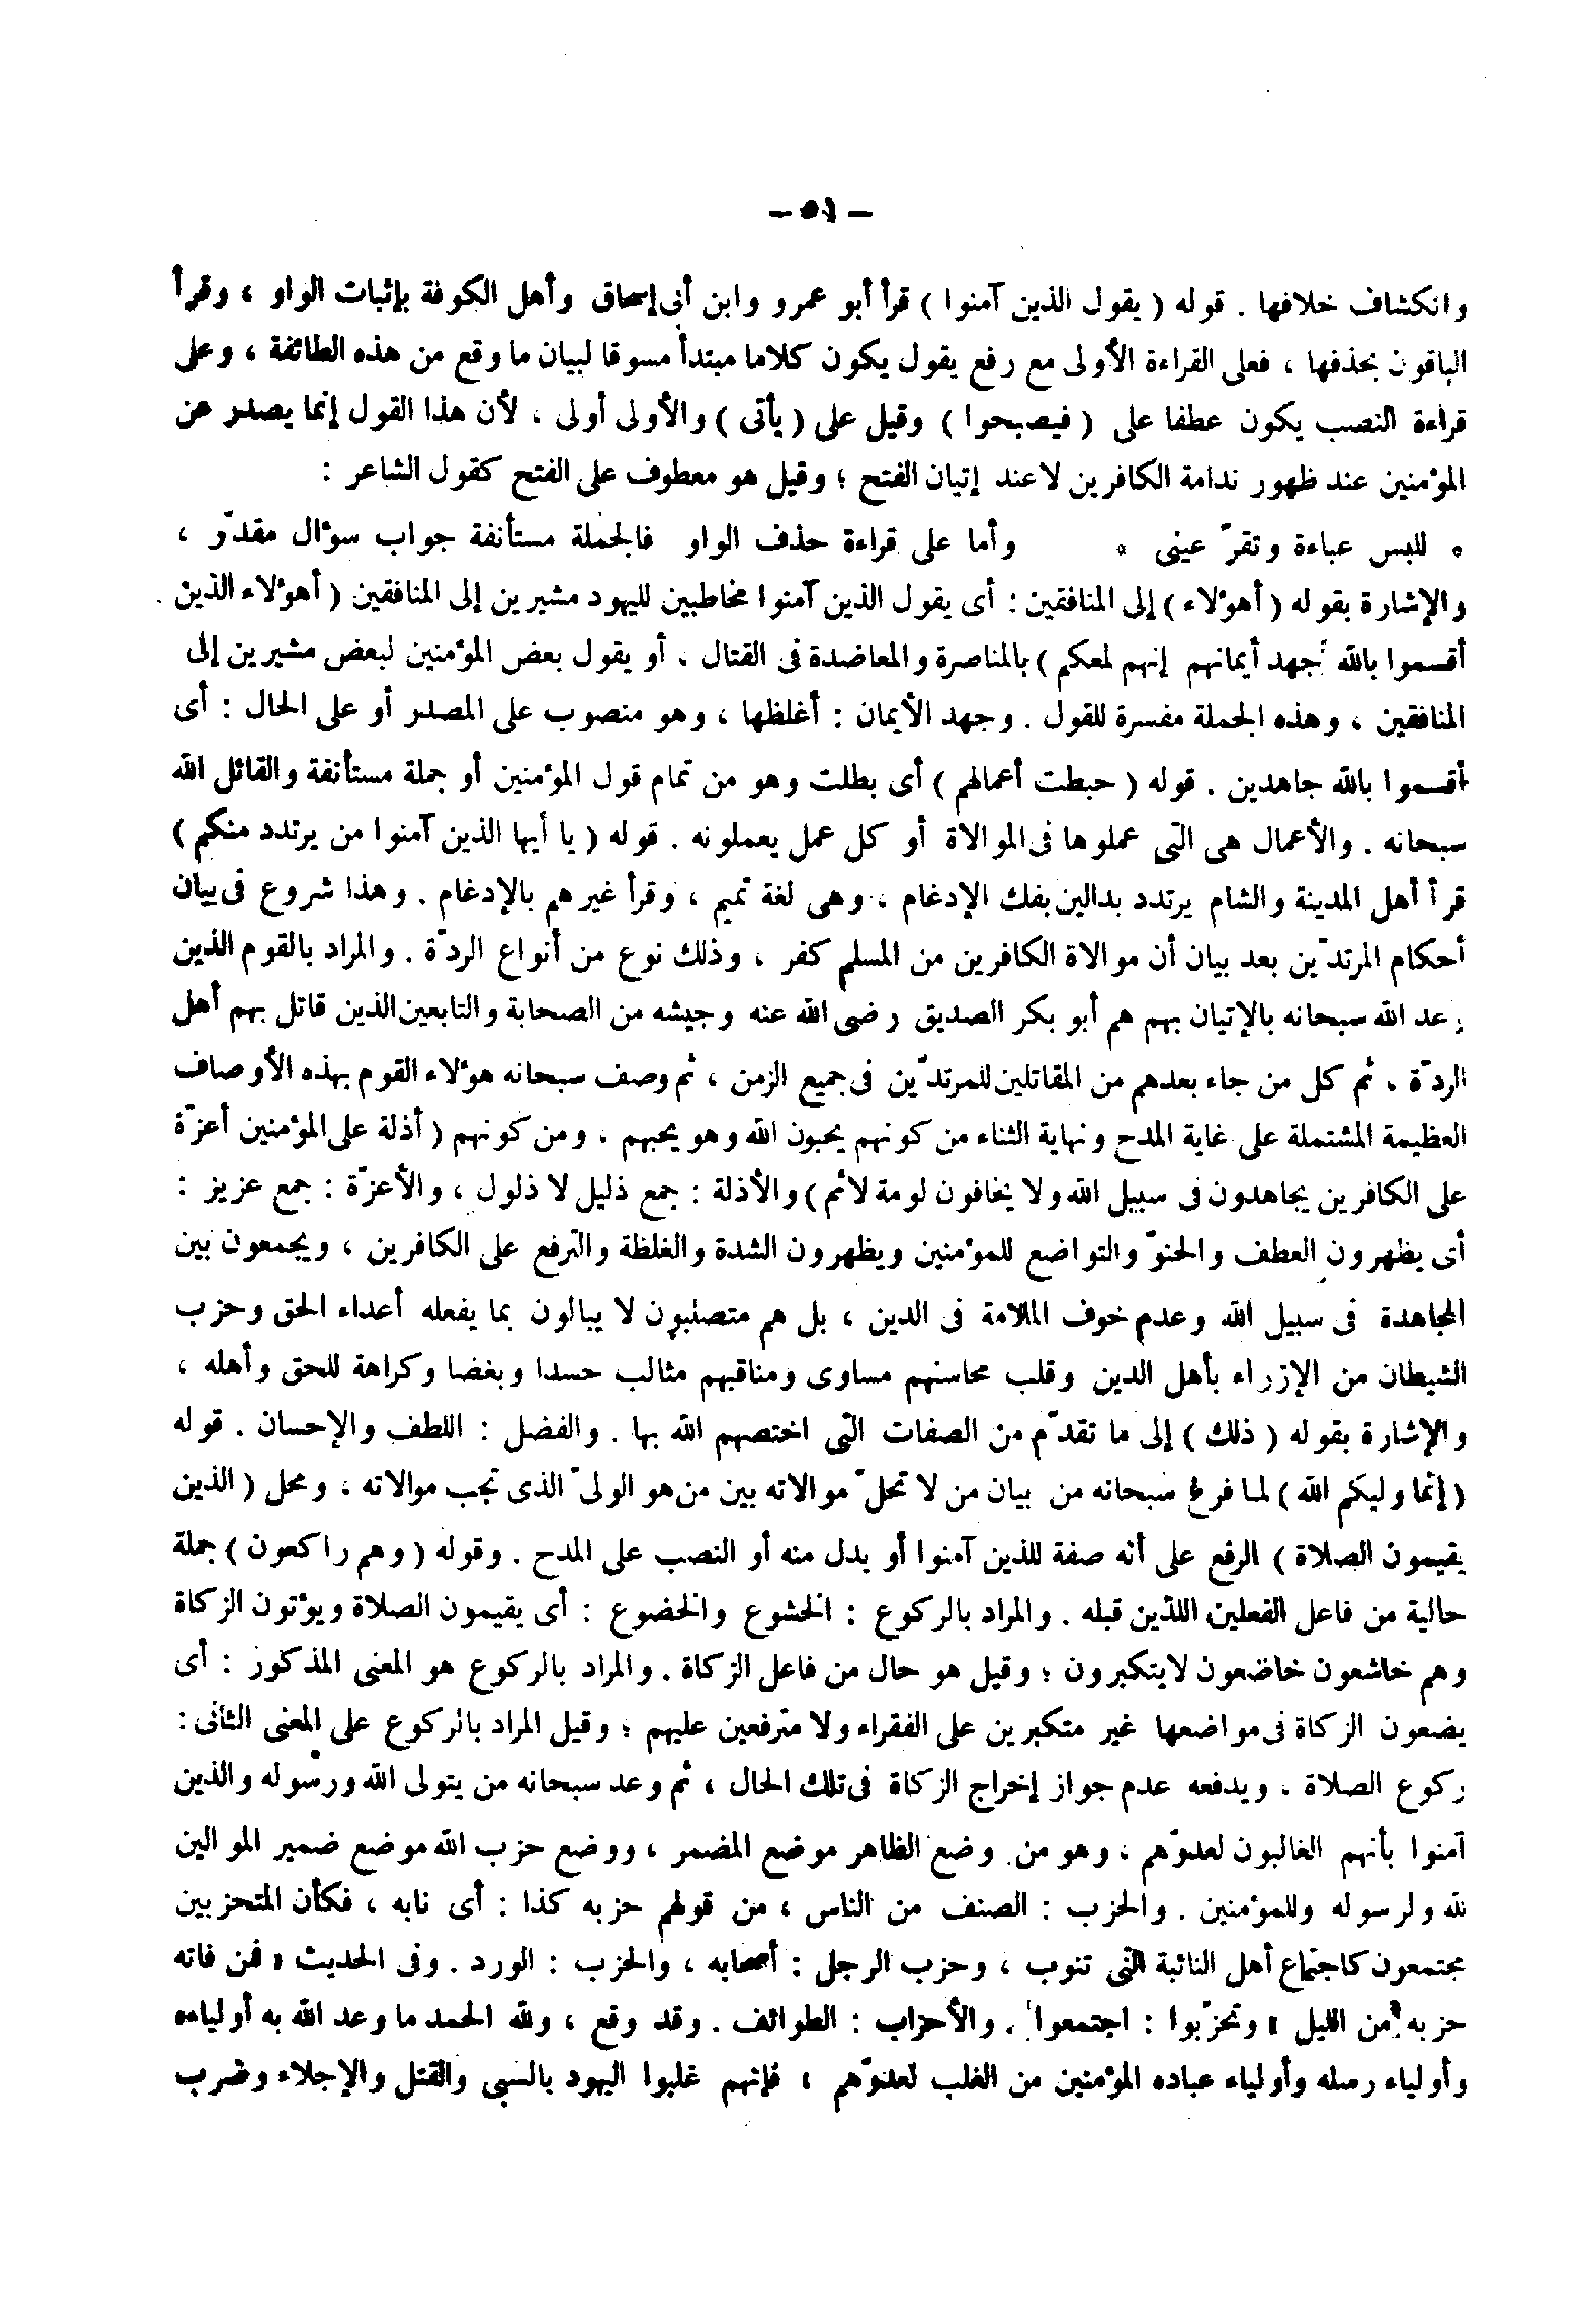 — ٥١ —
وانكشاف خلافها . قوله ( يقول الذين آمنوا ) قرأ أبو عمرو وابن أبى إسحاق وأهل الكوفة بإثبات الواو ، وقرأ
الباقون بحذفها ، فعلى القراءة الأولى مع رفع يقول يكون كلاما مبتدأ مسوقا لبيان ما وقع من هذه الطائفة ، وعلى
قراءة النصب يكون عطفا على ( فيصبحوا ) وقيل على ( يأتى ) والأولى أولى ، لأن هذا القول إنما يصدر عن
المؤمنين عند ظهور ندامة الكافرين لا عند إتيان الفتح ؛ وقيل هو معطوف على الفتح كقول الشاعر :
* للبس عباءة وتقرّ عينى * وأما على قراءة حذف الواو فالجملة مستأنفة جواب سؤال مقدّر ،
والإشارة بقوله ( أهؤلاء ) إلى المنافقين : أى يقول الذين آمنوا مخاطبين لليهود مشيرين إلى المنافقين ( أهؤلاء الذين
أقسموا بالله جهد أيمانهم إنهم لمعكم ) بالمناصرة والمعاضدة فى القتال ، أو يقول بعض المؤمنين لبعض مشيرين إلى
المنافقين ، وهذه الجملة مفسرة للقول . وجهد الأيمان : أغلظها ، وهو منصوب على المصدر أو على الحال : أى
أقسموا بالله جاهدين . قوله ( حبطت أعمالهم ) أى بطلت وهو من تمام قول المؤمنين أو جملة مستأنفة والقائل الله
سبحانه . والأعمال هى التى عملوها فى الموالاة أو كل عمل يعملونه . قوله ( يا أيها الذين آمنوا من يرتدد منكم )
قرأ أهل المدينة والشام يرتدد بدالين بفك الإدغام ، وهى لغة تميم ، وقرأ غيرهم بالإدغام . وهذا شروع فى بيان
أحكام المرتدّين بعد بيان أن موالاة الكافرين من المسلم كفر ، وذلك نوع من أنواع الردّة . والمراد بالقوم الذين
وعد الله سبحانه بالإتيان بهم هم أبو بكر الصديق رضى الله عنه وجيشه من الصحابة والتابعين الذين قاتل بهم أهل
الردّة ، ثم كل من جاء بعدهم من المقاتلين للمرتدّين فى جميع الزمن ، ثم وصف سبحانه هؤلاء القوم بهذه الأوصاف
العظيمة المشتملة على غاية المدح ونهاية الثناء من كونهم يحبون الله وهو يحبهم ، ومن كونهم ( أذلة على المؤمنين أعزّة
على الكافرين يجاهدون فى سبيل الله ولا يخافون لومة لائم ) والأذلة : جمع ذليل لا ذلول ، والأعزّة : جمع عزيز :
أى يظهرون العطف والحنوّ والتواضع للمؤمنين ويظهرون الشدة والغلظة والترفع على الكافرين ، ويجمعون بين
المجاهدة فى سبيل الله وعدم خوف الملامة فى الدين ، بل هم متصلبون لا يبالون بما يفعله أعداء الحق وحزب
الشيطان من الإزراء بأهل الدين وقلب محاسنهم مساوى ومناقبهم مثالب حسدا وبغضا وكراهة للحق وأهله ،
والإشارة بقوله ( ذلك ) إلى ما تقدّم من الصفات التى اختصهم الله بها . والفضل : اللطف والإحسان . قوله
( إنما وليكم الله ) لما فرغ سبحانه من بيان من لا تحلّ موالاته بين من هو الولىّ الذى تجب موالاته ، ومحل ( الذين
يقيمون الصلاة ) الرفع على أنه صفة للذين آمنوا أو بدل منه أو النصب على المدح . وقوله ( وهم راكعون ) جملة
حالية من فاعل الفعلين اللذين قبله . والمراد بالركوع : الخشوع والخضوع : أى يقيمون الصلاة ويؤتون الزكاة
وهم خاشعون خاضعون لا يتكبرون ؛ وقيل هو حال من فاعل الزكاة . والمراد بالركوع هو المعنى المذكور : أى
يضعون الزكاة فى مواضعها غير متكبرين على الفقراء ولا مترفعين عليهم ؛ وقيل المراد بالركوع على المعنى الثانى :
ركوع الصلاة . ويدفعه عدم جواز إخراج الزكاة فى تلك الحال ، ثم وعد سبحانه من يتولى الله ورسوله والذين
آمنوا بأنهم الغالبون لعدوّهم ، وهو من وضع الظاهر موضع المضمر ، ووضع حزب الله موضع ضمير الموالين
لله ولرسوله وللمؤمنين . والحزب : الصنف من الناس ، من قولهم حزبه كذا : أى نابه ، فكأن المتحزبين
مجتمعون كاجتماع أهل النائبة التى تنوب ، وحزب الرجل : أصحابه ، والحزب : الورد . وفى الحديث « فمن فاته
حزبه من الليل » وتحزّبوا : اجتمعوا . والأحزاب : الطوائف . وقد وقع ، ولله الحمد ما وعد الله به أولياءه
وأولياء رسله وأولياء عباده المؤمنين من الغلب لعدوّهم ، فإنهم غلبوا اليهود بالسبى والقتل والإجلاء وضرب